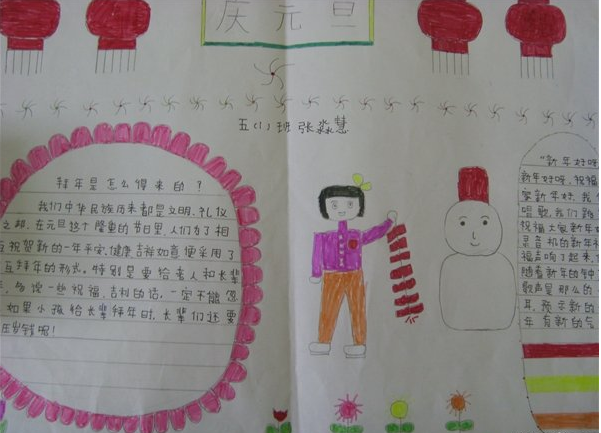 庆元旦
五(1)班张淼慧
拜年是怎么得来的?
我们中华民族历来都是文明、礼仪
之邦,在元旦这个隆重的节日里,人们为了相
互祝贺新的一年平安、健康、吉祥如意便采用了
互拜年的形式。特别是要给老人和长辈
说一些祝福、吉利的话,一定不能忽
如果小孩给长辈拜年时,长辈们还要
压岁钱呢!
"新年好呀
新年好呀,祝福
家新年好.我们
唱歌,我们跳
祝福大家新年好
录音机的新年
福声响了起来,
随着新年的钟
歌声是那么的
耳,预示新的
年有新的气